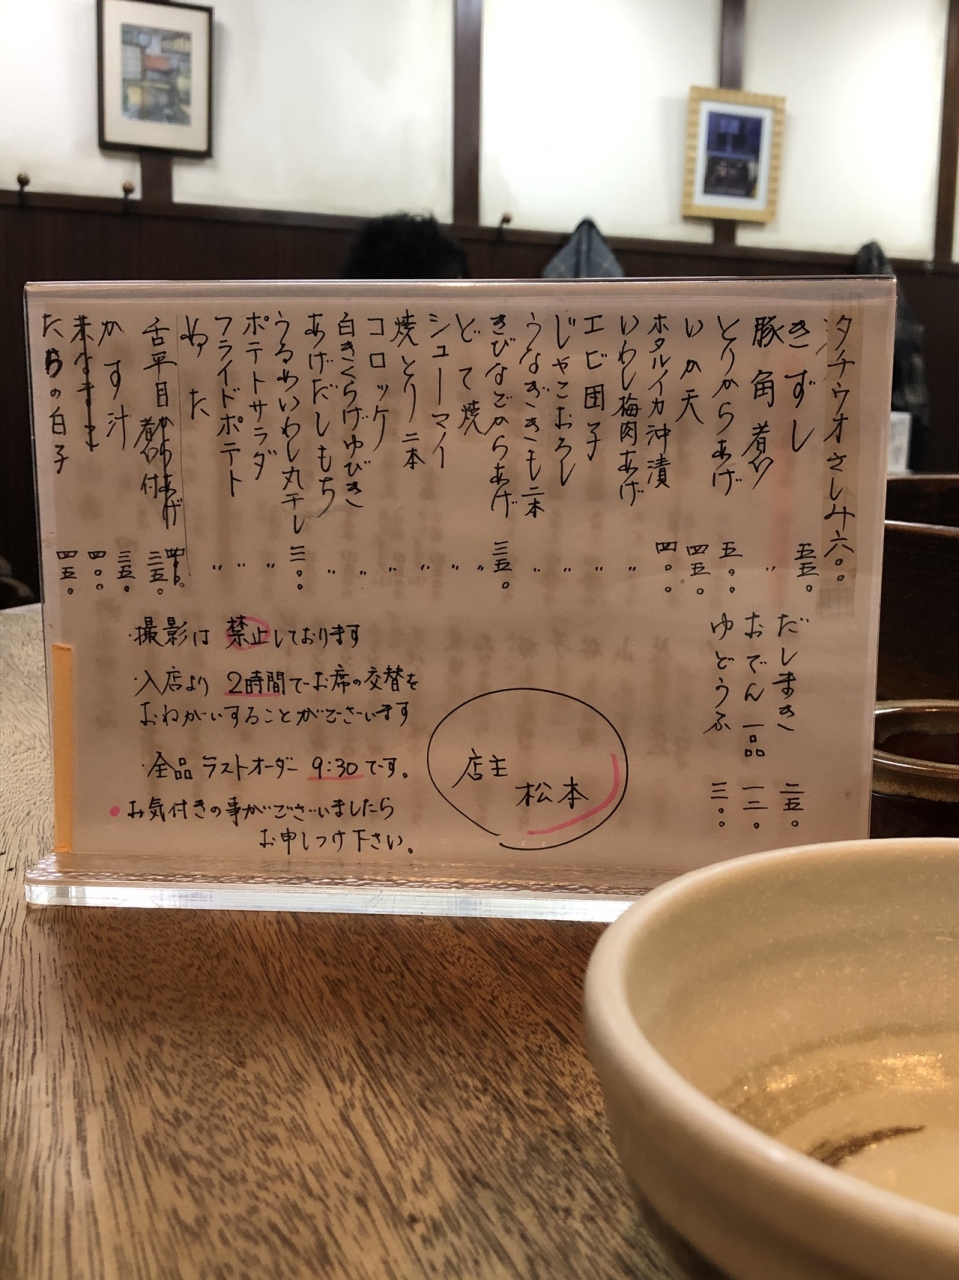 タチウオさしみ 六〇〇
きずし 五五〇
豚角煮 〃
とりからあげ 五〇〇
いか天 四五〇
ホタルイカ沖漬 四〇〇
いわし梅肉あげ 〃
エビ団子 〃
じゃこおろし 〃
うなぎきも二本 〃
きびなごからあげ 三五〇
どて焼 〃
シューマイ 〃
焼とり二本 〃
コロッケ 〃
白きくらげゆびき 〃
あげだしもち 〃
うるめいわし丸干し 三〇〇
ポテトサラダ 〃
フライドポテト 〃
ぬた 〃
舌平目からあげ
煮付 三五〇
かす汁 三五〇
四〇〇
たらの白子 四五〇
だしまき 二五〇
おでん一品 一二〇
ゆどうふ 三〇〇
・撮影は禁止しております
・入店より2時間でお席の交替を
おねがいすることがございます
・全品ラストオーダー9:30です。
●お気付きの事がございましたら
お申しつけ下さい。
店主
松本